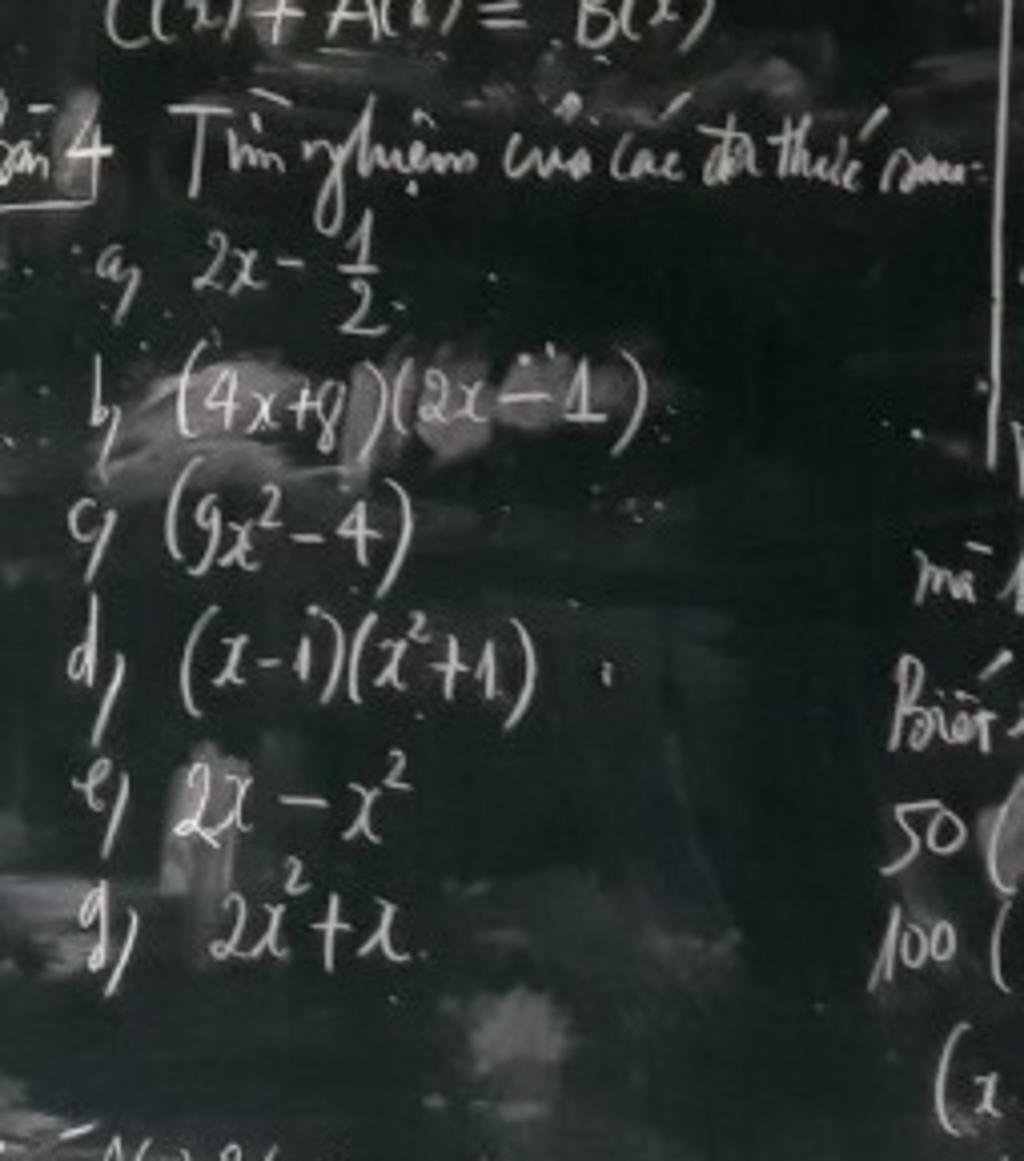 C(x) + A(x) = B(x)
Bài 4 Tìm nghiệm của các đa thức sau:
a) 2x - 1/2
b) (4x+8)(2x-1)
c) (9x² - 4)
d) (x-1)(x²+1)
e) 2x - x²
g) 2x² + x
mà
Biết
50 (
100 (
(x